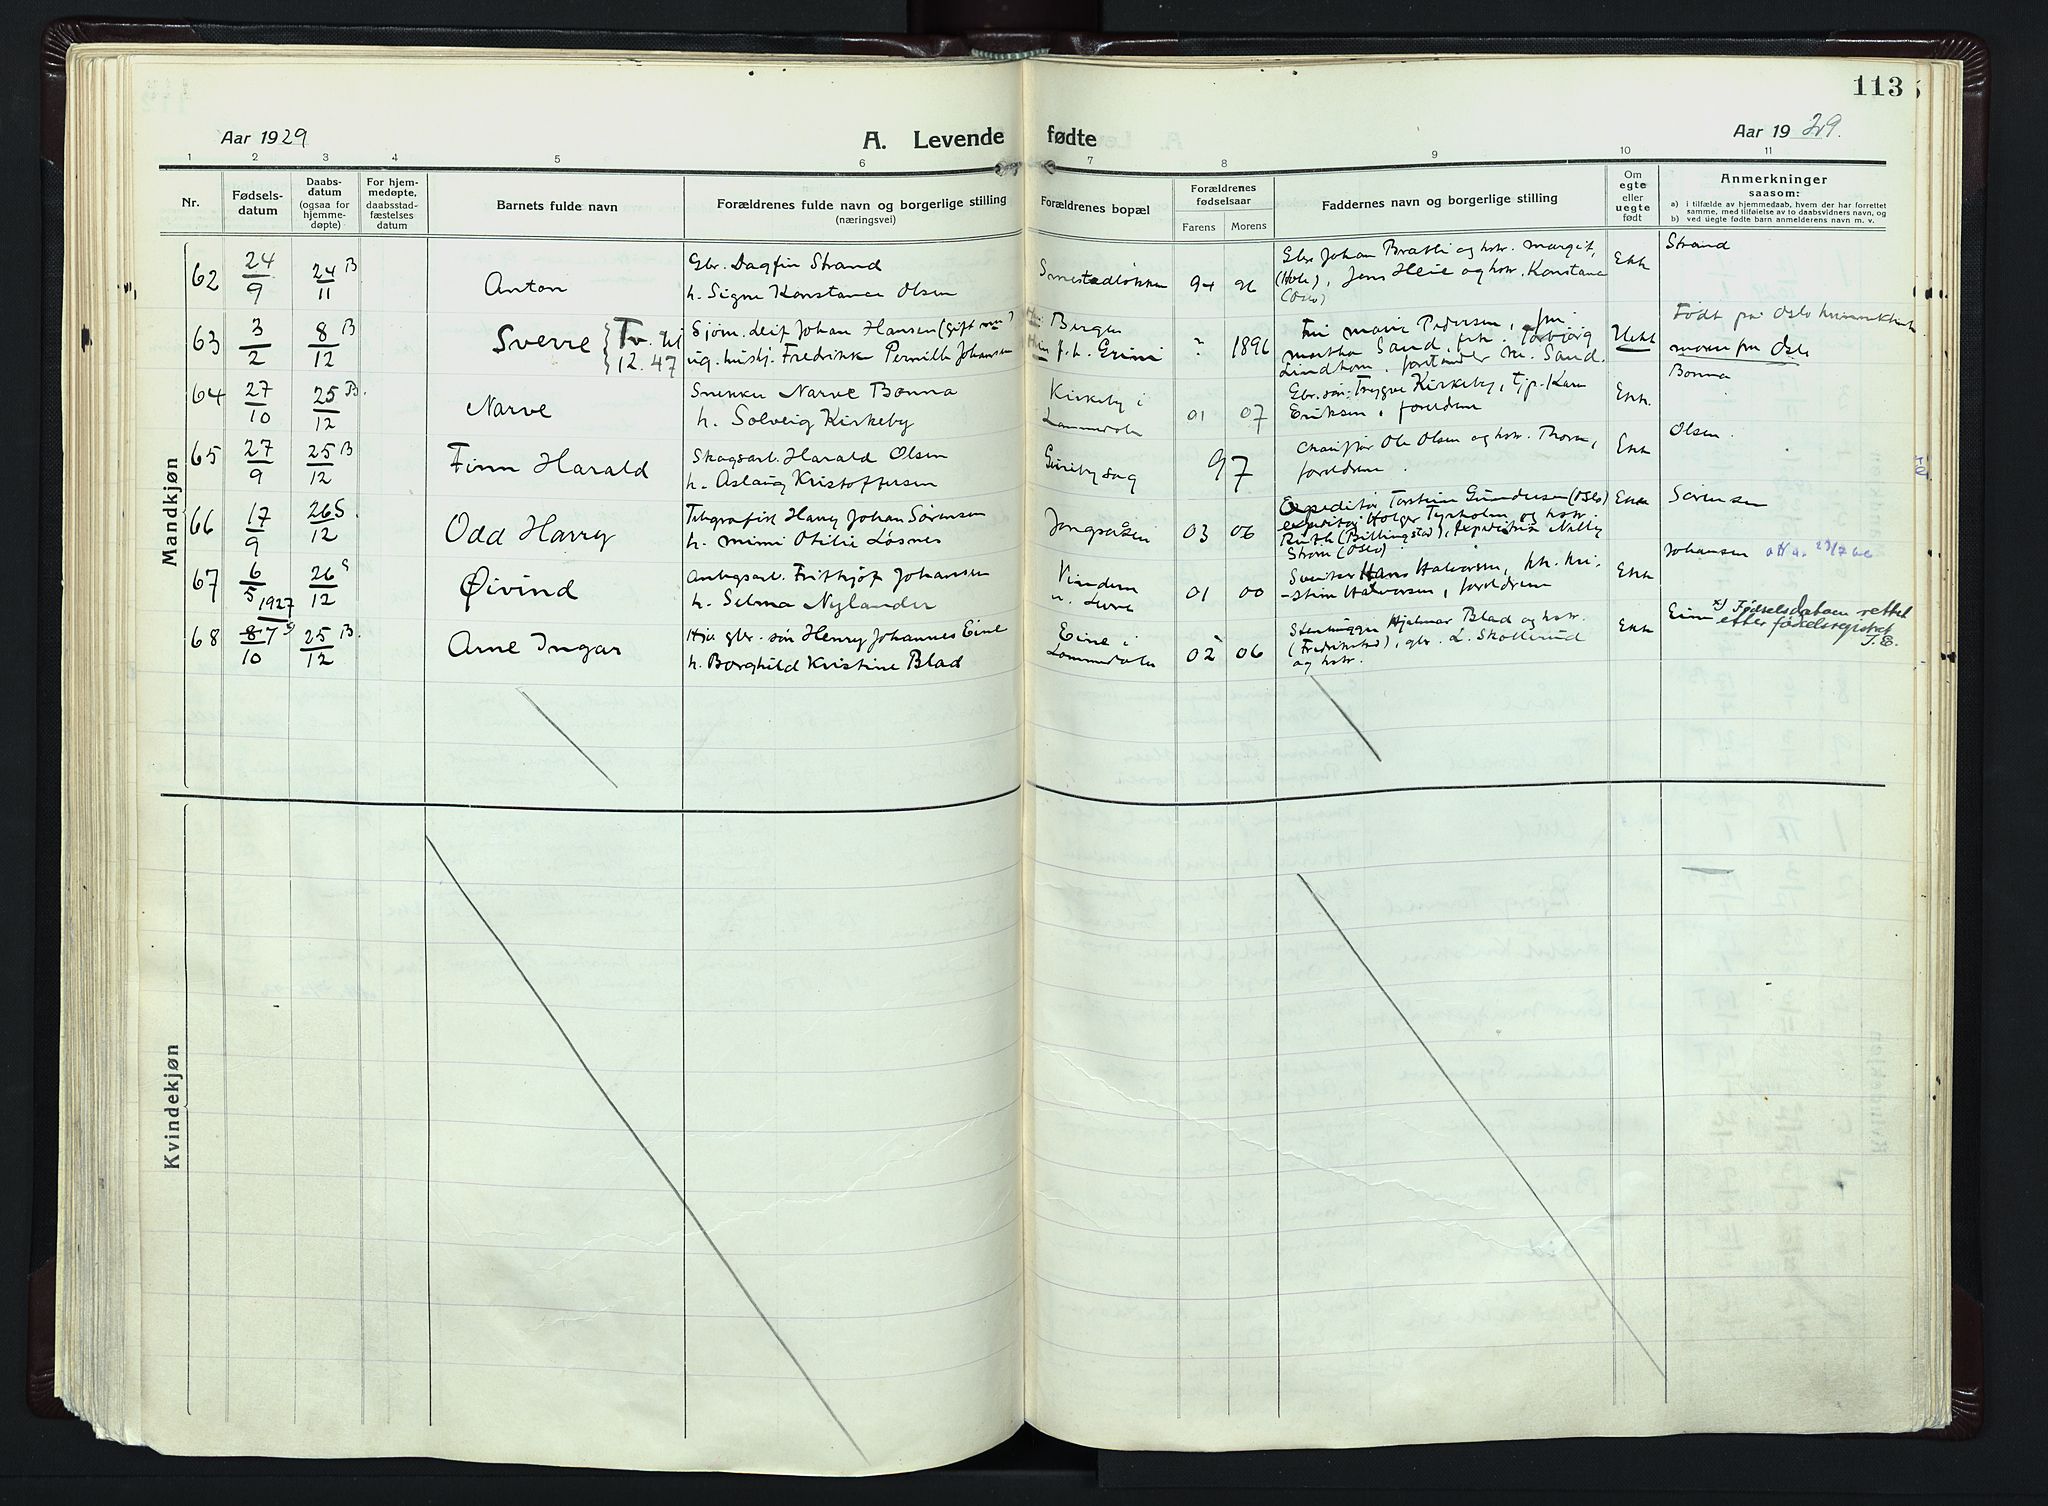 113
Aar 1929
A. Levende fødte
Aar 1929.
1 2 3 4 5 6 7 8 9 10 11
Nr.
Fødsels-
datum
Daabs-
datum
(ogsaa for
hjemme-
døpte)
For hjem-
medøpte,
daabsstad-
fæstelses
datum
Barnets fulde navn
Forældrenes fulde navn og borgerlige stilling
(næringsvei)
Forældrenes bopæl
Forældrenes
fødselsaar
Farens Morens
Faddernes navn og borgerlige stilling
Om
egte
eller
uegte
født
Anmerkninger
saasom:
a) i tilfælde av hjemmedaab, hvem der har forrettet
samme, med tilføielse av to daabsvidners navn, og
b) ved uegte fødte barn anmelderens navn m. v.
Mandkjøn
62 24/9 24/11 B Anton
Gbr. Dagfin Strand
h. Signe Konstance Olsen
94 96
Gbr. Johan Bratli og hstr. Margit,
(Hole), Jens Heie og hstr. Konstance
(Oslo)
Ekt
Strand
63 3/2 8/12 B Sverre
12.47
Sjøm. Leif Johan Hansen (gift)
ug. hushj. Fredrikke Pernille Johansen
Bergen
f. h. Grini
? 1896
Fru Marie Pedersen, frk.
Martha Sand, frk. Torbjørg
Lindhom, forstander M. Sand.
Uekt
Født på Oslo
moren fra Oslo
64 27/10 25/12 B. Narve
Snekker Narve Bonna
h. Solveig Kirkeby
Kirkeby i
Lommedalen
01 07
Gbr.søn Trygve Kirkeby, tjp. Kari
Eriksen, foreldrene
Ekt.
Bonna
65 27/9 25/12 B Finn Harald
Skogsarb. Harald Olsen
h. Aslaug Kristoffersen
Guriby sag
97
Chauffør Ole Olsen og hstr. Thora,
foreldrene.
Ekt
Olsen.
66 17/9 26/12 S. Odd Harry
Telegrafist Harry Johan Sørensen
h. Mimi Otilie Løsnes
Jongsåsen
03 06
Expeditør Torstein Gundersen (Oslo)
expeditør Holger Tyrholm og hstr.
Ruth (Billingstad), expeditrise Nelly
Strøm (Oslo)
Ekt
Sørensen
67 6/5 1927 26/12 S Øivind
Anlegsarb. Frithjof Johansen
h. Selma Nylander
Vindern
01 00
Sveiser Hans Halvorsen, frk. Kri-
stine Halvorsen, foreldrene
Ekt
Johansen
68 8/10 7 25/12 B. Arne Ingar
Hja gbr. søn Henry Johannes Eine
h. Borghild Kristine Blad
Eine i
Lommedalen
02 06
Stenhugger Hjalmar Blad og hstr.
(Fredrikstad), gbr. L. Skollerud
og hstr.
Ekt
Eine x) Fødselsdatoen rettet
etter fødselsregistret
T. E.
Kvindekjøn